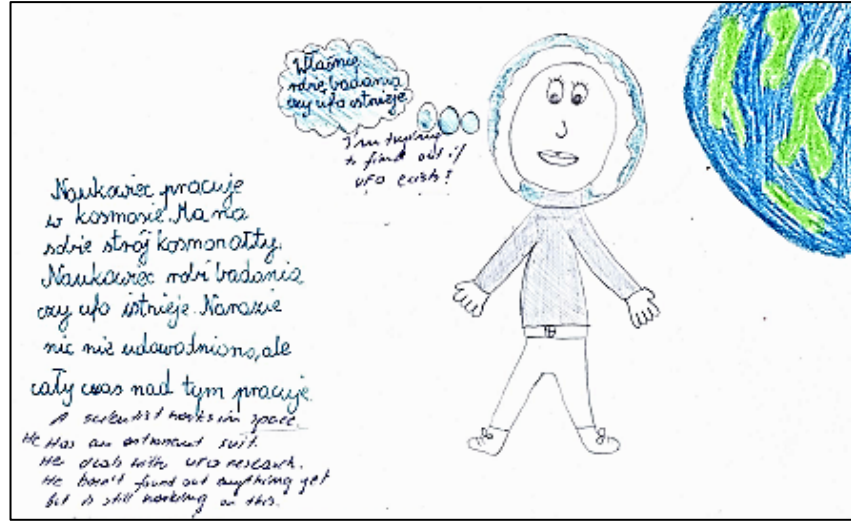 Właśnie
robię badania
czy ufo istnieje
I'm trying
to find out if
UFO exists!
Naukowiec pracuje
w kosmosie. Ma na
sobie strój kosmonałty.
Naukowiec robi badania
czy ufo istnieje. Narazie
nic nie udowodniono, ale
cały czas nad tym pracuje.
A scientist works in space.
He has an astronaut suit.
He deals with UFO research.
He hasn't found out anything yet
but is still working on this.